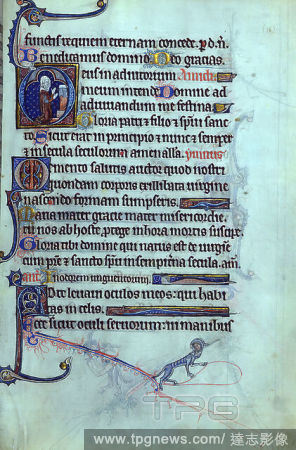 functis requiem eternam concede. p. d. n̄.
Benedicamus domino. Deo gracias.
Deus in adiutorium
meum intende. Domine ad
adiuvandum me festina.
Gloria patri et filio et sp̄ui sancto
Sicut erat in principio et nunc et semper
et in secula seculorum amen alla. ymnus
Memento salutis auctor quod nostri
quondam corporis ex illibata virgine
nascendo formam sumpseris.
Maria mater gracie mater misericordie
tu nos ab hoste protege in hora mortis suscipe.
Gloria tibi domine qui natus est de virgine
cum pr̄e et sancto sp̄u in sempiterna secula. am̄.
ant. In odorem unguentorum.
Ad te levavi oculos meos: qui habi
tas in celis.
Ecce sicut oculi servorum: in manibus
TPG
www.tpgnews.com / 達志影像